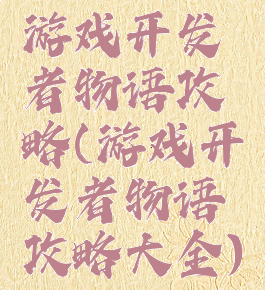 游戏开发
者物语攻
略(游戏开
发者物语
攻略大全)